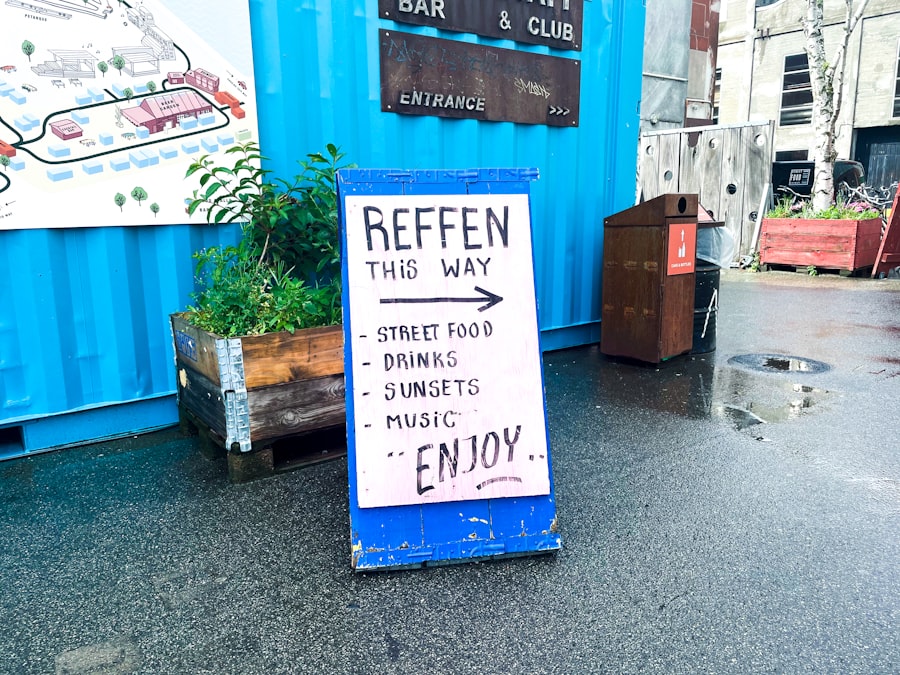 BAR
& CLUB
ENTRANCE >>>
REFFEN
THIS WAY
- STREET FOOD
- DRINKS
- SUNSETS
- MUSIC
ENJOY